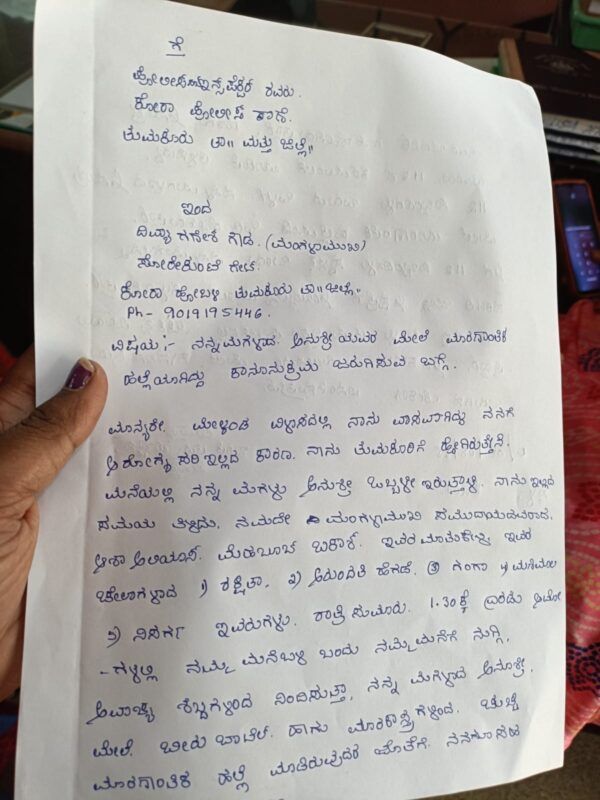 ಗೆ
ಪೋಲೀಸ್ಇನ್ಸ್ ಪೆಕ್ಟರ್ ರವರು.
ಕೋರಾ ಪೋಲೀಸ್ ಠಾಣೆ.
ತುಮಕೂರು ತಾ॥ ಮತ್ತು ಜಿಲ್ಲೆ॥
ಇಂದ
ದಿವ್ಯಾ ಗಣೇಶ ಗೌಡ. (ಮಂಗಳಾಮುಖಿ)
ಸೋರೇಕುಂಟೆ ಗೇಟ.
ಕೋರಾ ಹೋಬಳಿ ತುಮಕೂರು ತಾ॥ಜಿಲ್ಲೆ॥
Ph - 9019195446.
ವಿಷಯ :- ನನ್ನ ಮಗಳಾದ ಅನುಶ್ರೀ ಯವರ ಮೇಲೆ ಮಾರಣಾಂತಿಕ
ಹಲ್ಲೆಯಾಗಿದ್ದು ಕಾನೂನುಕ್ರಮ ಜರುಗಿಸುವ ಬಗ್ಗೆ.
ಮಾನ್ಯರೇ. ಮೇಲ್ಕಂಡ ವಿಳಾಸದಲ್ಲಿ ನಾನು ವಾಸವಾಗಿದ್ದು ನನಗೆ
ಆರೋಗ್ಯ ಸರಿ ಇಲ್ಲದ ಕಾರಣ. ನಾನು ತುಮಕೂರಿಗೆ ಹೋಗಿರುತ್ತೇನೆ.
ಮನೆಯಲ್ಲಿ ನನ್ನ ಮಗಳು ಅನುಶ್ರೀ ಒಬ್ಬಳೇ ಇರುತ್ತಾಳೆ. ನಾನು ಇಲ್ಲದ
ಸಮಯ ತಿಳಿದು. ನಮದೇ ಮಂಗಳಾಮುಖಿ ಸಮುದಾಯದವರಾದ.
ಆಶಾ ಅಲಿಯಾಸ್. ಮೆಹಬೂಬ್ ಇವರ ಮಾತುಕೇಳಿ ಇವರ
ಚೇಲಾಗಳಾದ 1) ರಕ್ಷಿತಾ. 2) ಅರುಂದತಿ ಹೆಗಡೆ. (3) ಗಂಗಾ 4) ಮನಿಮಾಲ
5) ನಿಸರ್ಗ ಇವರುಗಳು. ರಾತ್ರಿ ಸುಮಾರು. 1.30ಕ್ಕೆ ಎರಡು ಆಟೋ
-ಗಳಲ್ಲಿ ನಮ್ಮ ಮನೆಬಳಿ ಬಂದು ನಮ್ಮಮನೆಗೆ ನುಗ್ಗಿ,
ಅವಾಚ್ಯ ಶಬ್ದಗಳಿಂದ ನಿಂದಿಸುತ್ತಾ, ನನ್ನ ಮಗಳಾದ ಅನುಶ್ರೀ.
ಮೇಲೆ. ಬೀರು ಬಾಟಲ್. ಹಾಗು ಮಾರಕಾಸ್ತ್ರಗಳಿಂದ. ಚುಚ್ಚಿ
ಮಾರಣಾಂತಿಕ ಹಲ್ಲೆ ಮಾಡಿರುವುದರ ಜೊತೆಗೆ. ನನಗೂ ಸಹ